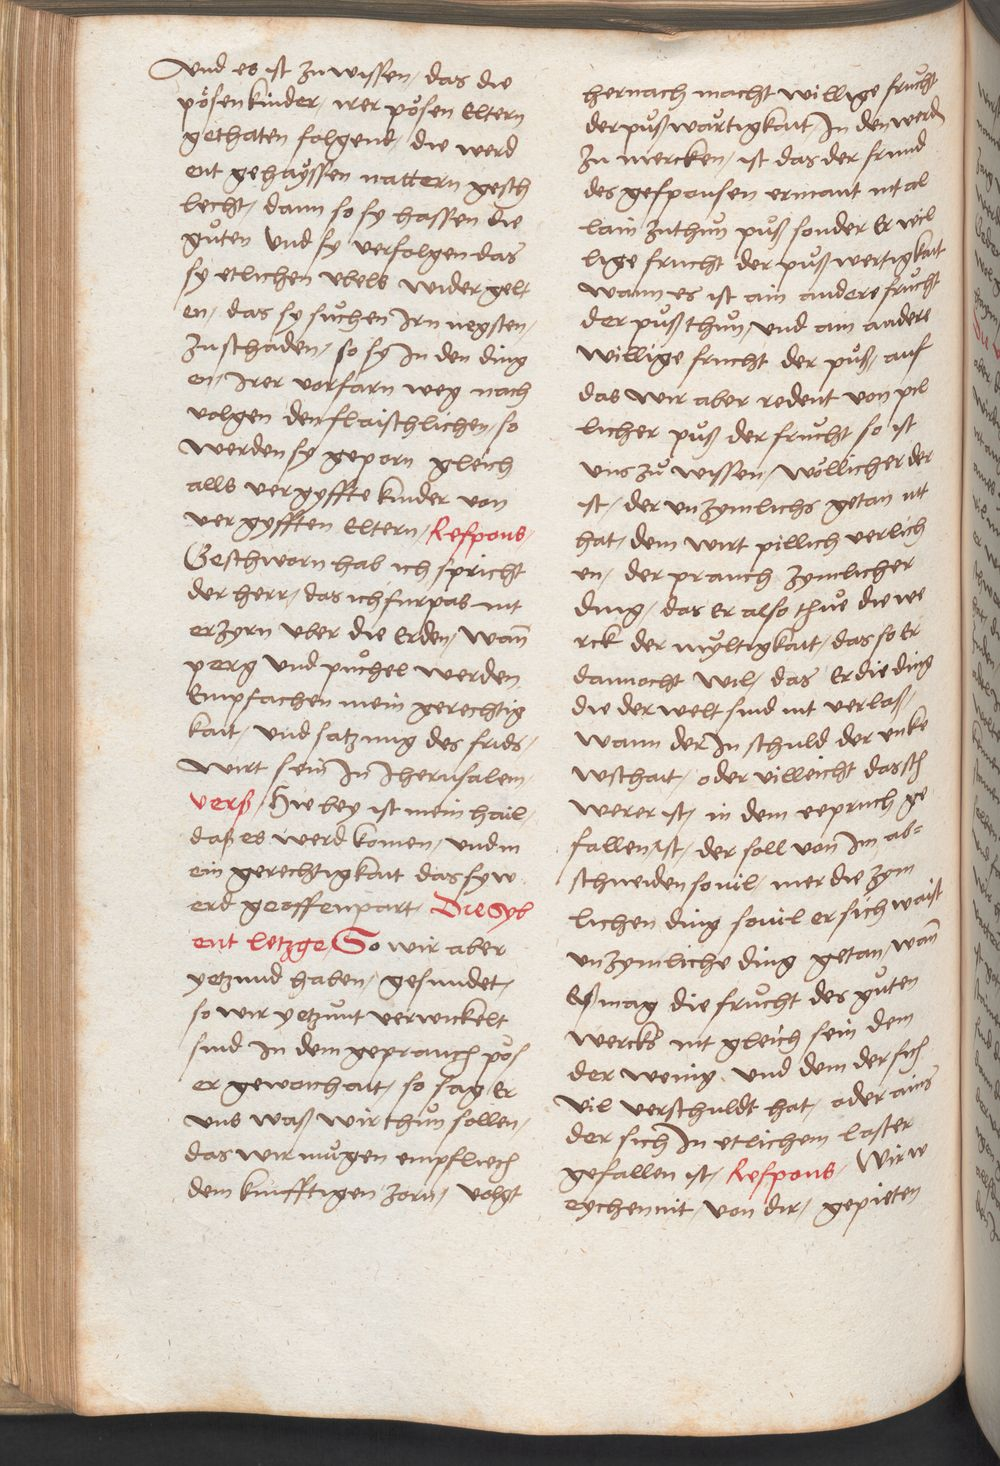 vnd es ist zu wissen, das die
pösen kinder, irer pösen Eltern
gethaten folgend, die werd
ent gehayssen nattern gesch
lecht, dann so sy hassen die
gůten vnd sy verfolgen das
sy etlichen vbels widergelt
en, das sy sůchen Irn negsten,
zu schaden, so sy In den ding
en, Irer vorfarn weg nach
volgen den flaischlichen, so
werden sy geporn gleich
alls vergyffte kinder von
vergyfften Eltern, Respons,
Geschworn hab ich spricht
der herr, das ich furpas nit
erzyrn vber die Erden, wañ
perg vnd půchel werden
Empfachen mein gerechtig
kait, vnd satzung des frids,
wirt sein In Iherusalem,
verß, Hie bey ist mein hail,
daß es werd komen, vnd m
ein gerechtigkait das sy w
erd geoffenpart, Die Syb
ent letzge, So wir aber
yetzund haben, gesundet,
so wir yetzůnt verwickelt
sind In dem geprauch pös
er gewonhait, so sag Er
vns waß wir thůn sollen,
das wir můgen empfliech
dem kunfftigen zorn, volgt
hernach macht willige frůcht
der půßwůrtigkait, In den werdn
zu mercken, ist das der frund
des gespousen ermant nit al
lain zuthůn půß sonder Er wil
lige frucht der půßwertigkait
wann es ist ain andere frůcht
der půß thůn, vnd ain andere
willige frucht der půß, auf
das wir aber redent von pil
licher půß der frůcht so ist
vns zů wissen, wöllicher der
ist, der vnzymlichs getan nit
hat, dem wirt pillich verlich
en, der prauch zymlicher
ding, das Er also thůe die we
rck der myltigkait, das so Er
dannocht wil, das Er die ding
die der welt sind nit verlaß,
wann der In schuld der vnke
wschait, oder villeicht das sch
werer ist, in dem eepruch ge
fallen ist, der soll von Im ab=
schneiden souil, mer die zym
lichen ding souil er sich waist
vnzymliche ding getan, wañ
Eß mag die frůcht des gůten
wercks nit gleich sein dem
der wenig, vnd dem der sich
vil verschuldt hat, oder ains
der sich In etlichem laster
gefallen ist, Respons, Wir w
eychen nit, von dir, gepieten